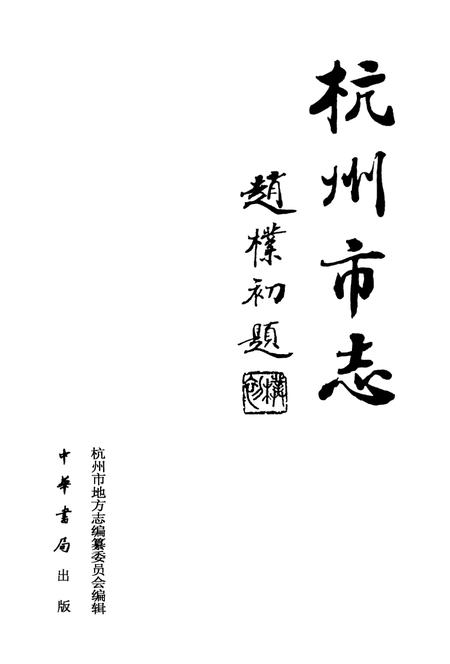 杭州市志
趙樸初題
樸初
杭州市地方志编纂委员会编辑
中華書局出版